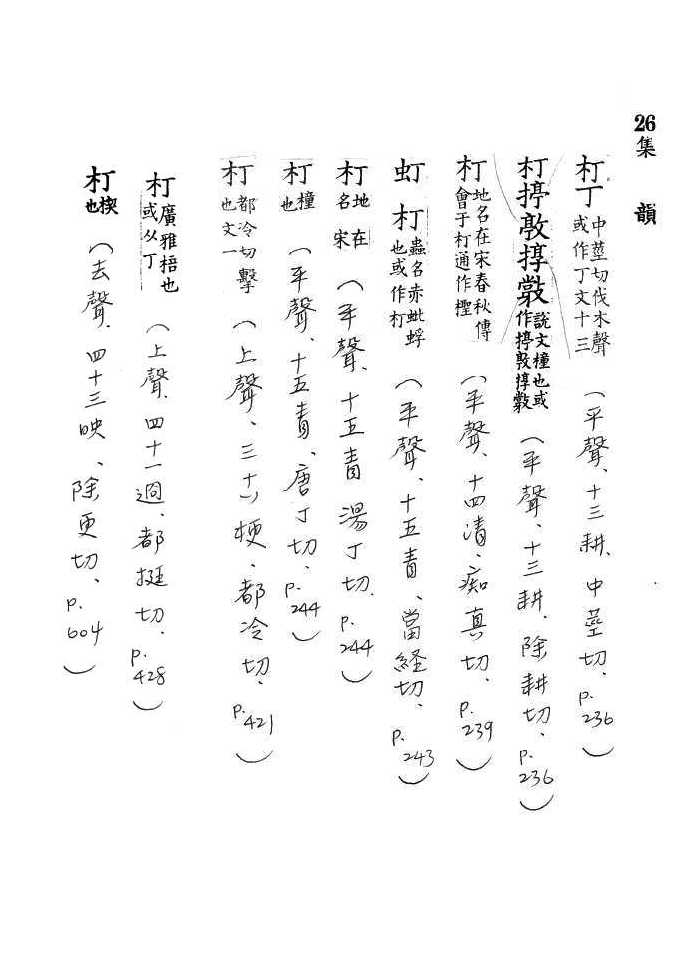 26
集韻
朾丁中莖切伐木聲或作丁文十三（平聲、十三耕、中莖切、p.236）
朾揨敦㨃說文橦也或作揨（平聲、十三耕、除耕切、p.236）
朾地名在宋春秋傳會于朾通作檉（平聲、十四清、痴真切、p.239）
虰朾蟲名赤蚍蜉也或作朾（平聲、十五青、當経切、p.243）
朾地名在宋（平聲、十五青湯丁切、p.244）
朾橦也（平聲、十五青、唐丁切、p.244）
朾都冷切擊也文一（上聲、三十八梗、都冷切、p.421）
朾廣雅棓也或从丁（上聲、四十一迥、都挺切、p.428）
朾楔也（去聲、四十三映、除更切、p.604）